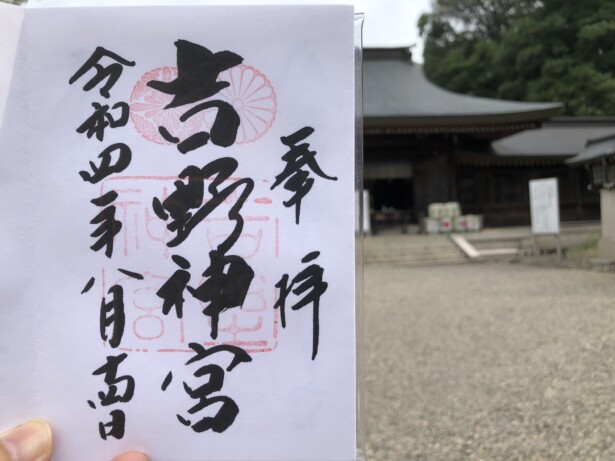 奉拝
吉野神宮
令和四年八月十四日